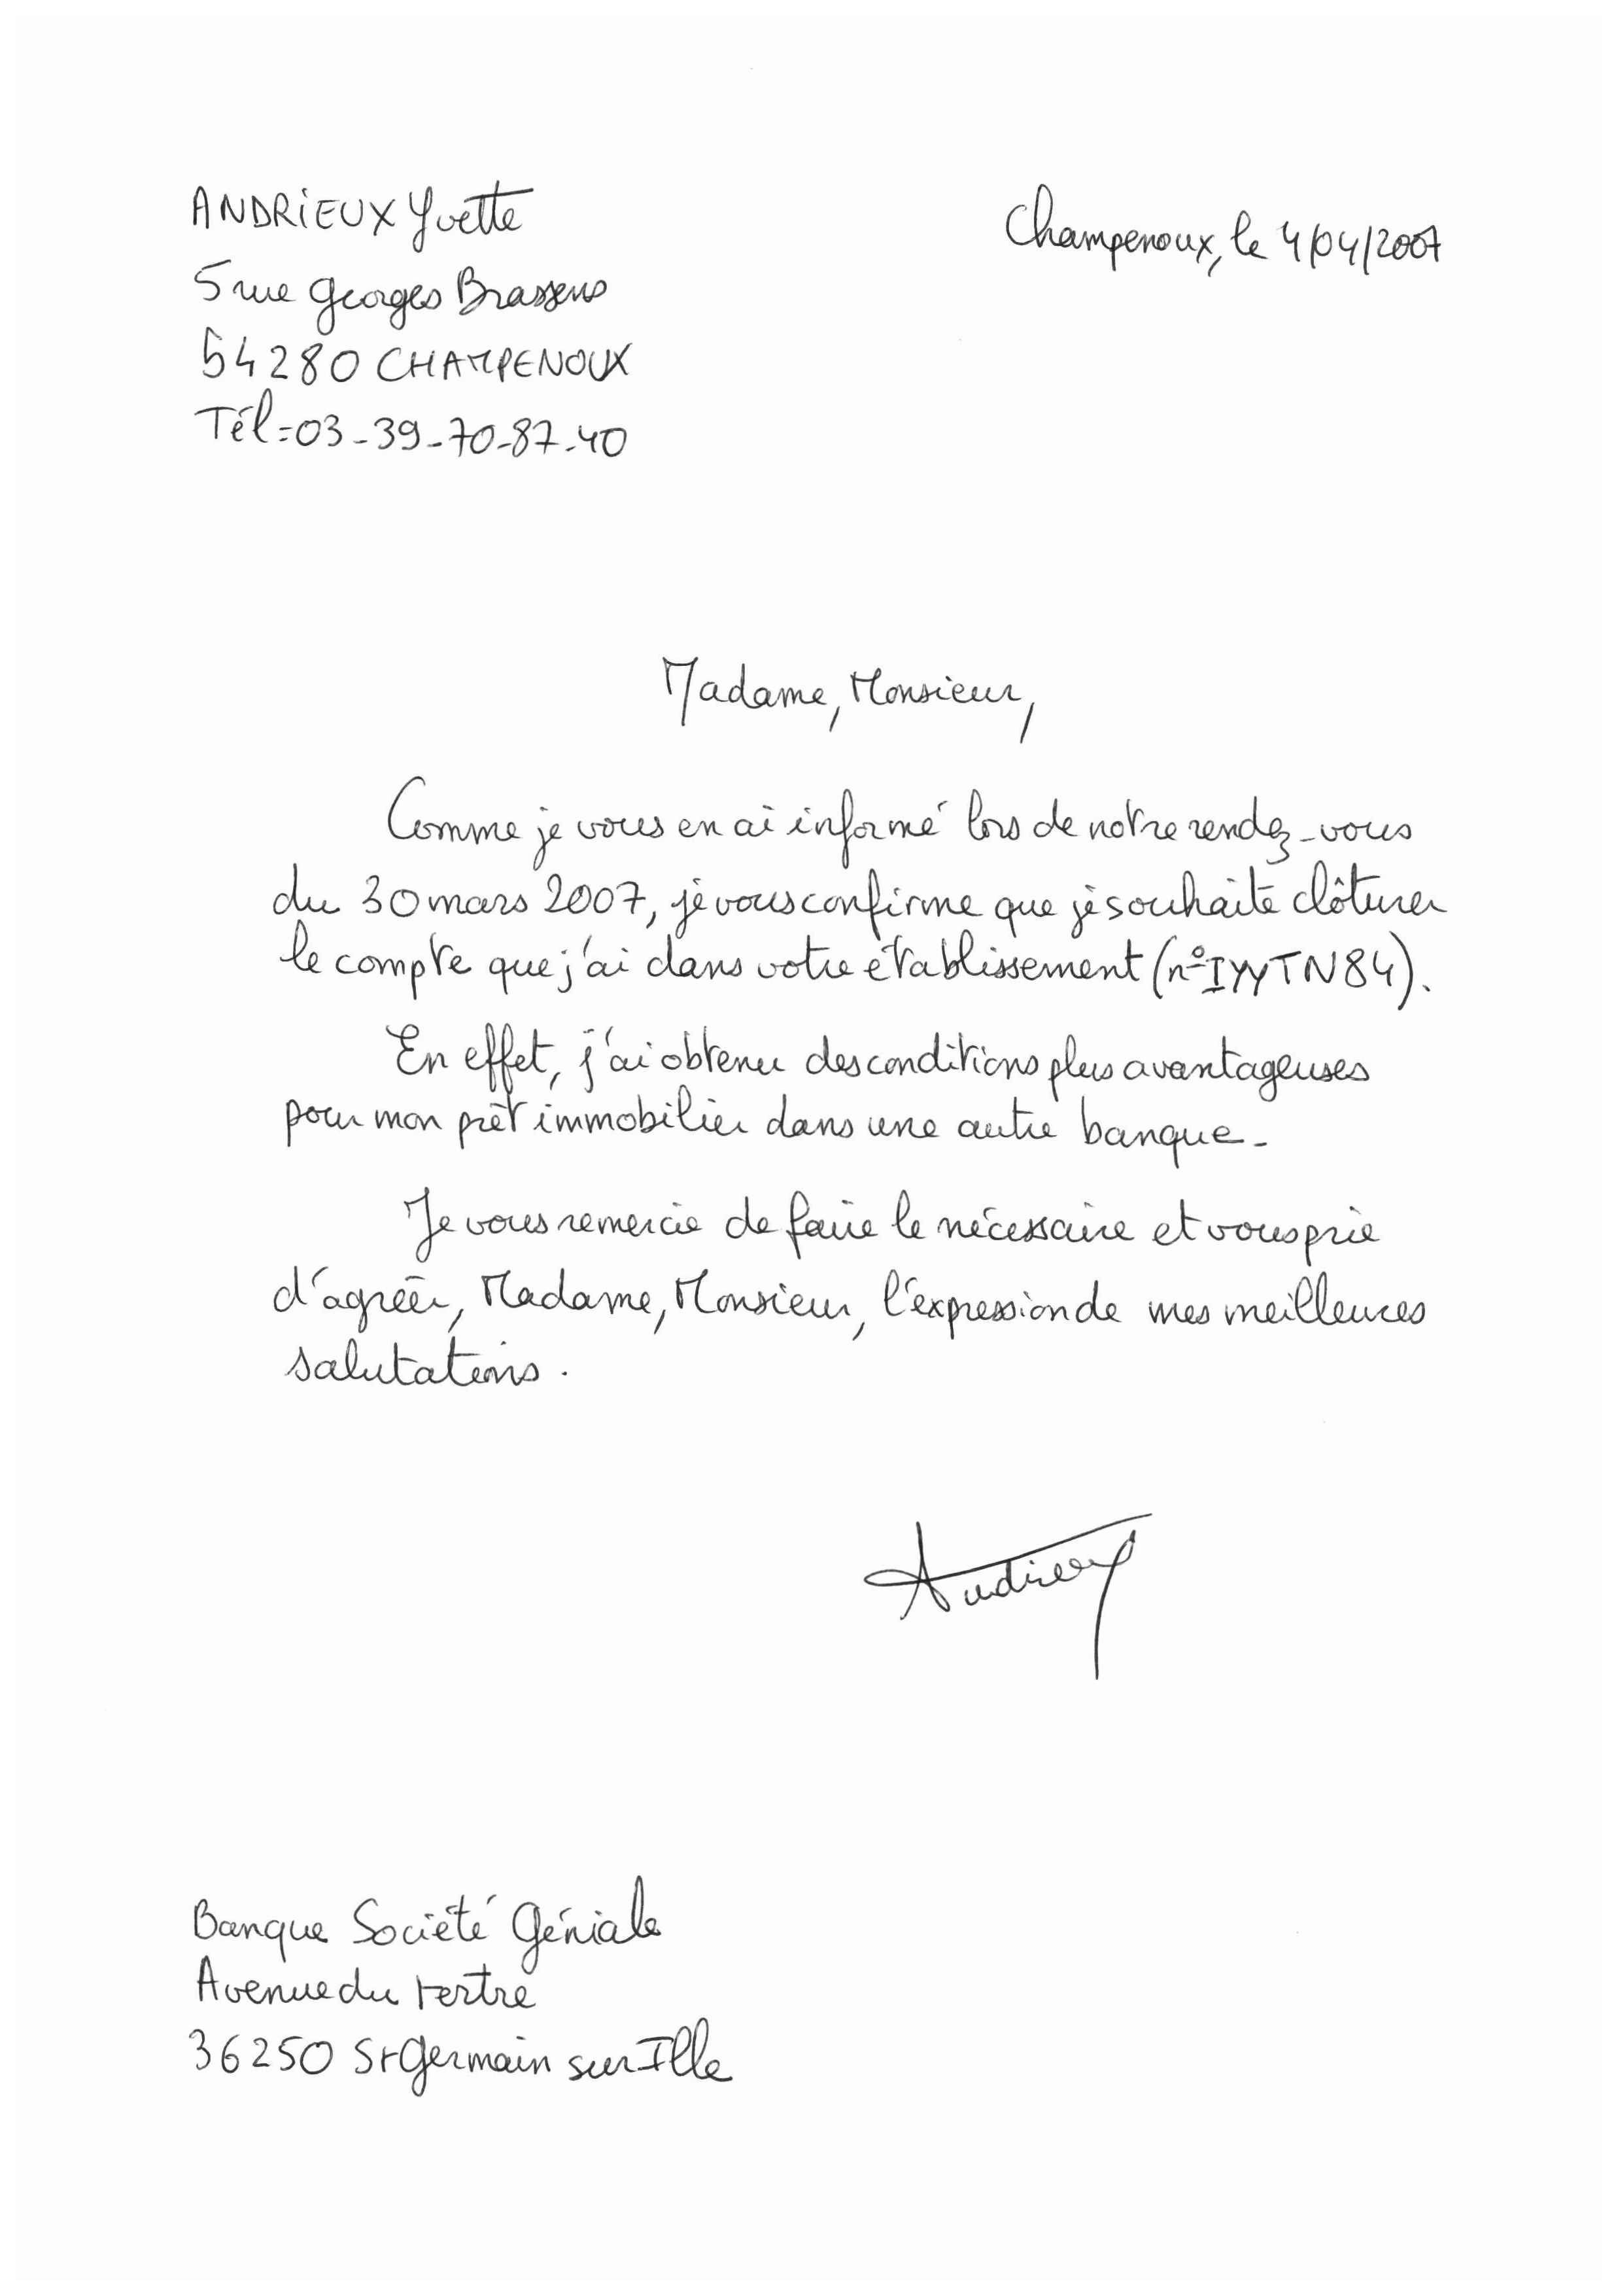 ANDRIEUX Yvette
Champenoux, le 4/04/2007
5 rue Georges Brassens
54280 CHAMPENOUX
Tél=03-39-70-87-40
Madame, Monsieur,
Comme je vous en ai informé lors de notre rendez-vous
du 30 mars 2007, je vous confirme que je souhaite clôturer
le compte que j'ai dans votre établissement (n°IYYTN84).
En effet, j'ai obtenu des conditions plus avantageuses
pour mon prêt immobilier dans une autre banque.
Je vous remercie de faire le nécessaire et vous prie
d'agréer, Madame, Monsieur, l'expression de mes meilleures
salutations.
Andrieux
Banque Société Géniale
Avenue du tertre
36250 St Germain sur Ille